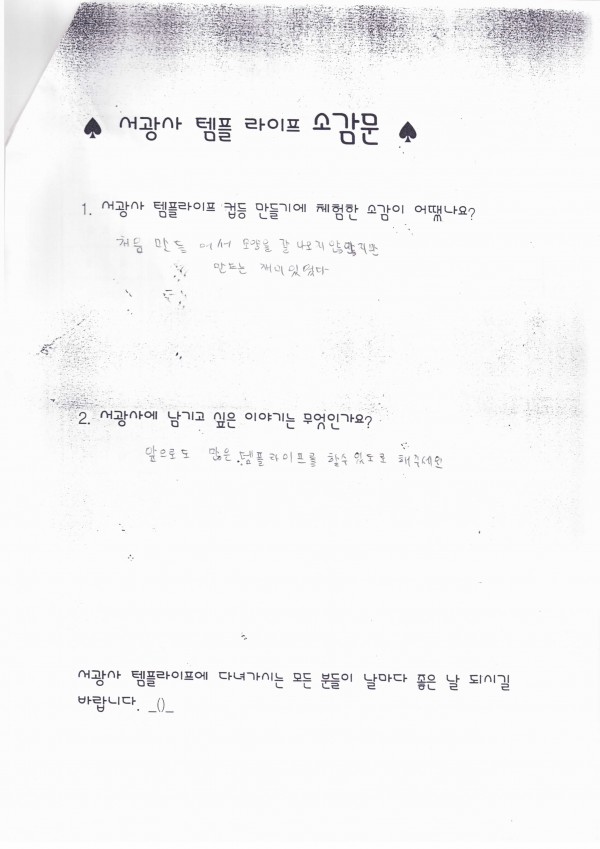 ♠ 서광사 템플 라이프 소감문 ♠
1. 서광사 템플라이프 컵등 만들기에 체험한 소감이 어땠나요?
처음 만들어서 모양을 잘 나오지 않았지만
만드는 재미있었다
2. 서광사에 남기고 싶은 이야기는 무엇인가요?
앞으로도 많은 템플라이프를 할수 있도록 해주세요
서광사 템플라이프에 다녀가시는 모든 분들이 날마다 좋은 날 되시길
바랍니다. _()_